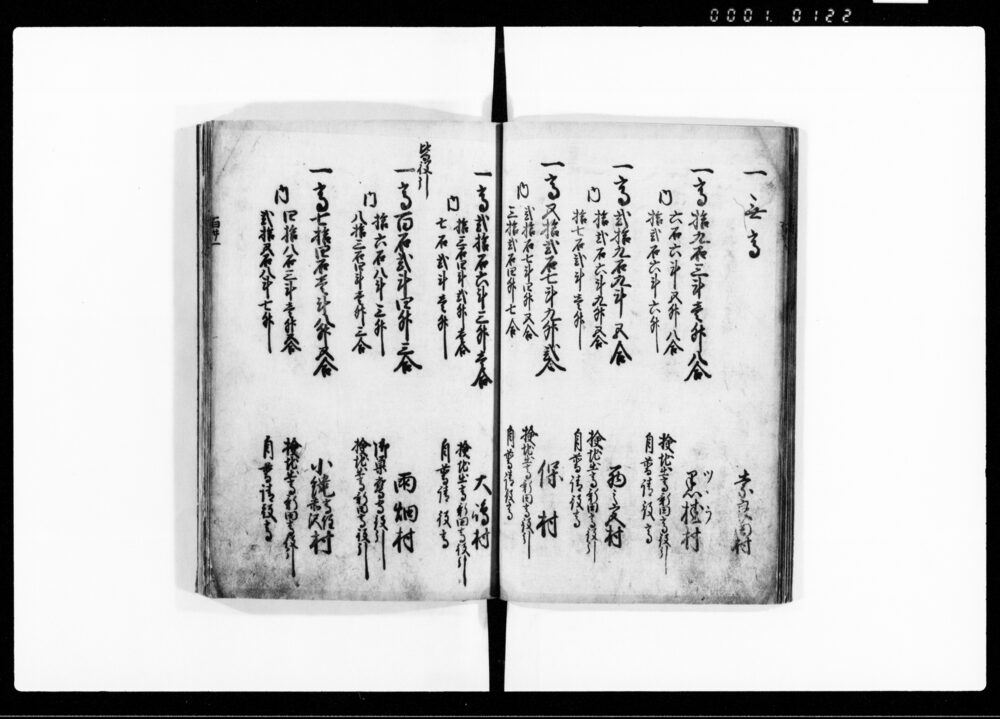 0001 0122
一 無高
村
一 高拾九石三斗壱升八合
黒桂村
ツヽラ
内
六石六斗又升八合
検地出高新田高役引
拾弐石六斗六升
自普請役高
一 高弐拾九石九斗又合
村
内
拾弐石六斗九升又合
検地出高新田高役引
拾七石弐斗壱升
自普請役高
一 高又拾弐石七斗九升弐合
保村
内
弐拾石七斗四升又合
検地出高新田高役引
三拾弐石四升七合
自普請役高
一 高弐拾石六斗三升壱合
大嶋村
内
拾三石四斗弐升壱合
検地出高新田高役引
七石弐斗壱升
自普請役高
皆役引
一 高百石弐斗四升三合
雨畑村
内
拾六石八斗三升
御巣鷹高役引
八拾三石四斗壱升三合
検地出高新田高役引
一 高七拾四石壱斗八升又合
小縄村
内
四拾八石三斗壱升又合
検地出高新田高役引
弐拾又石八斗七升
自普請役高
百廿一